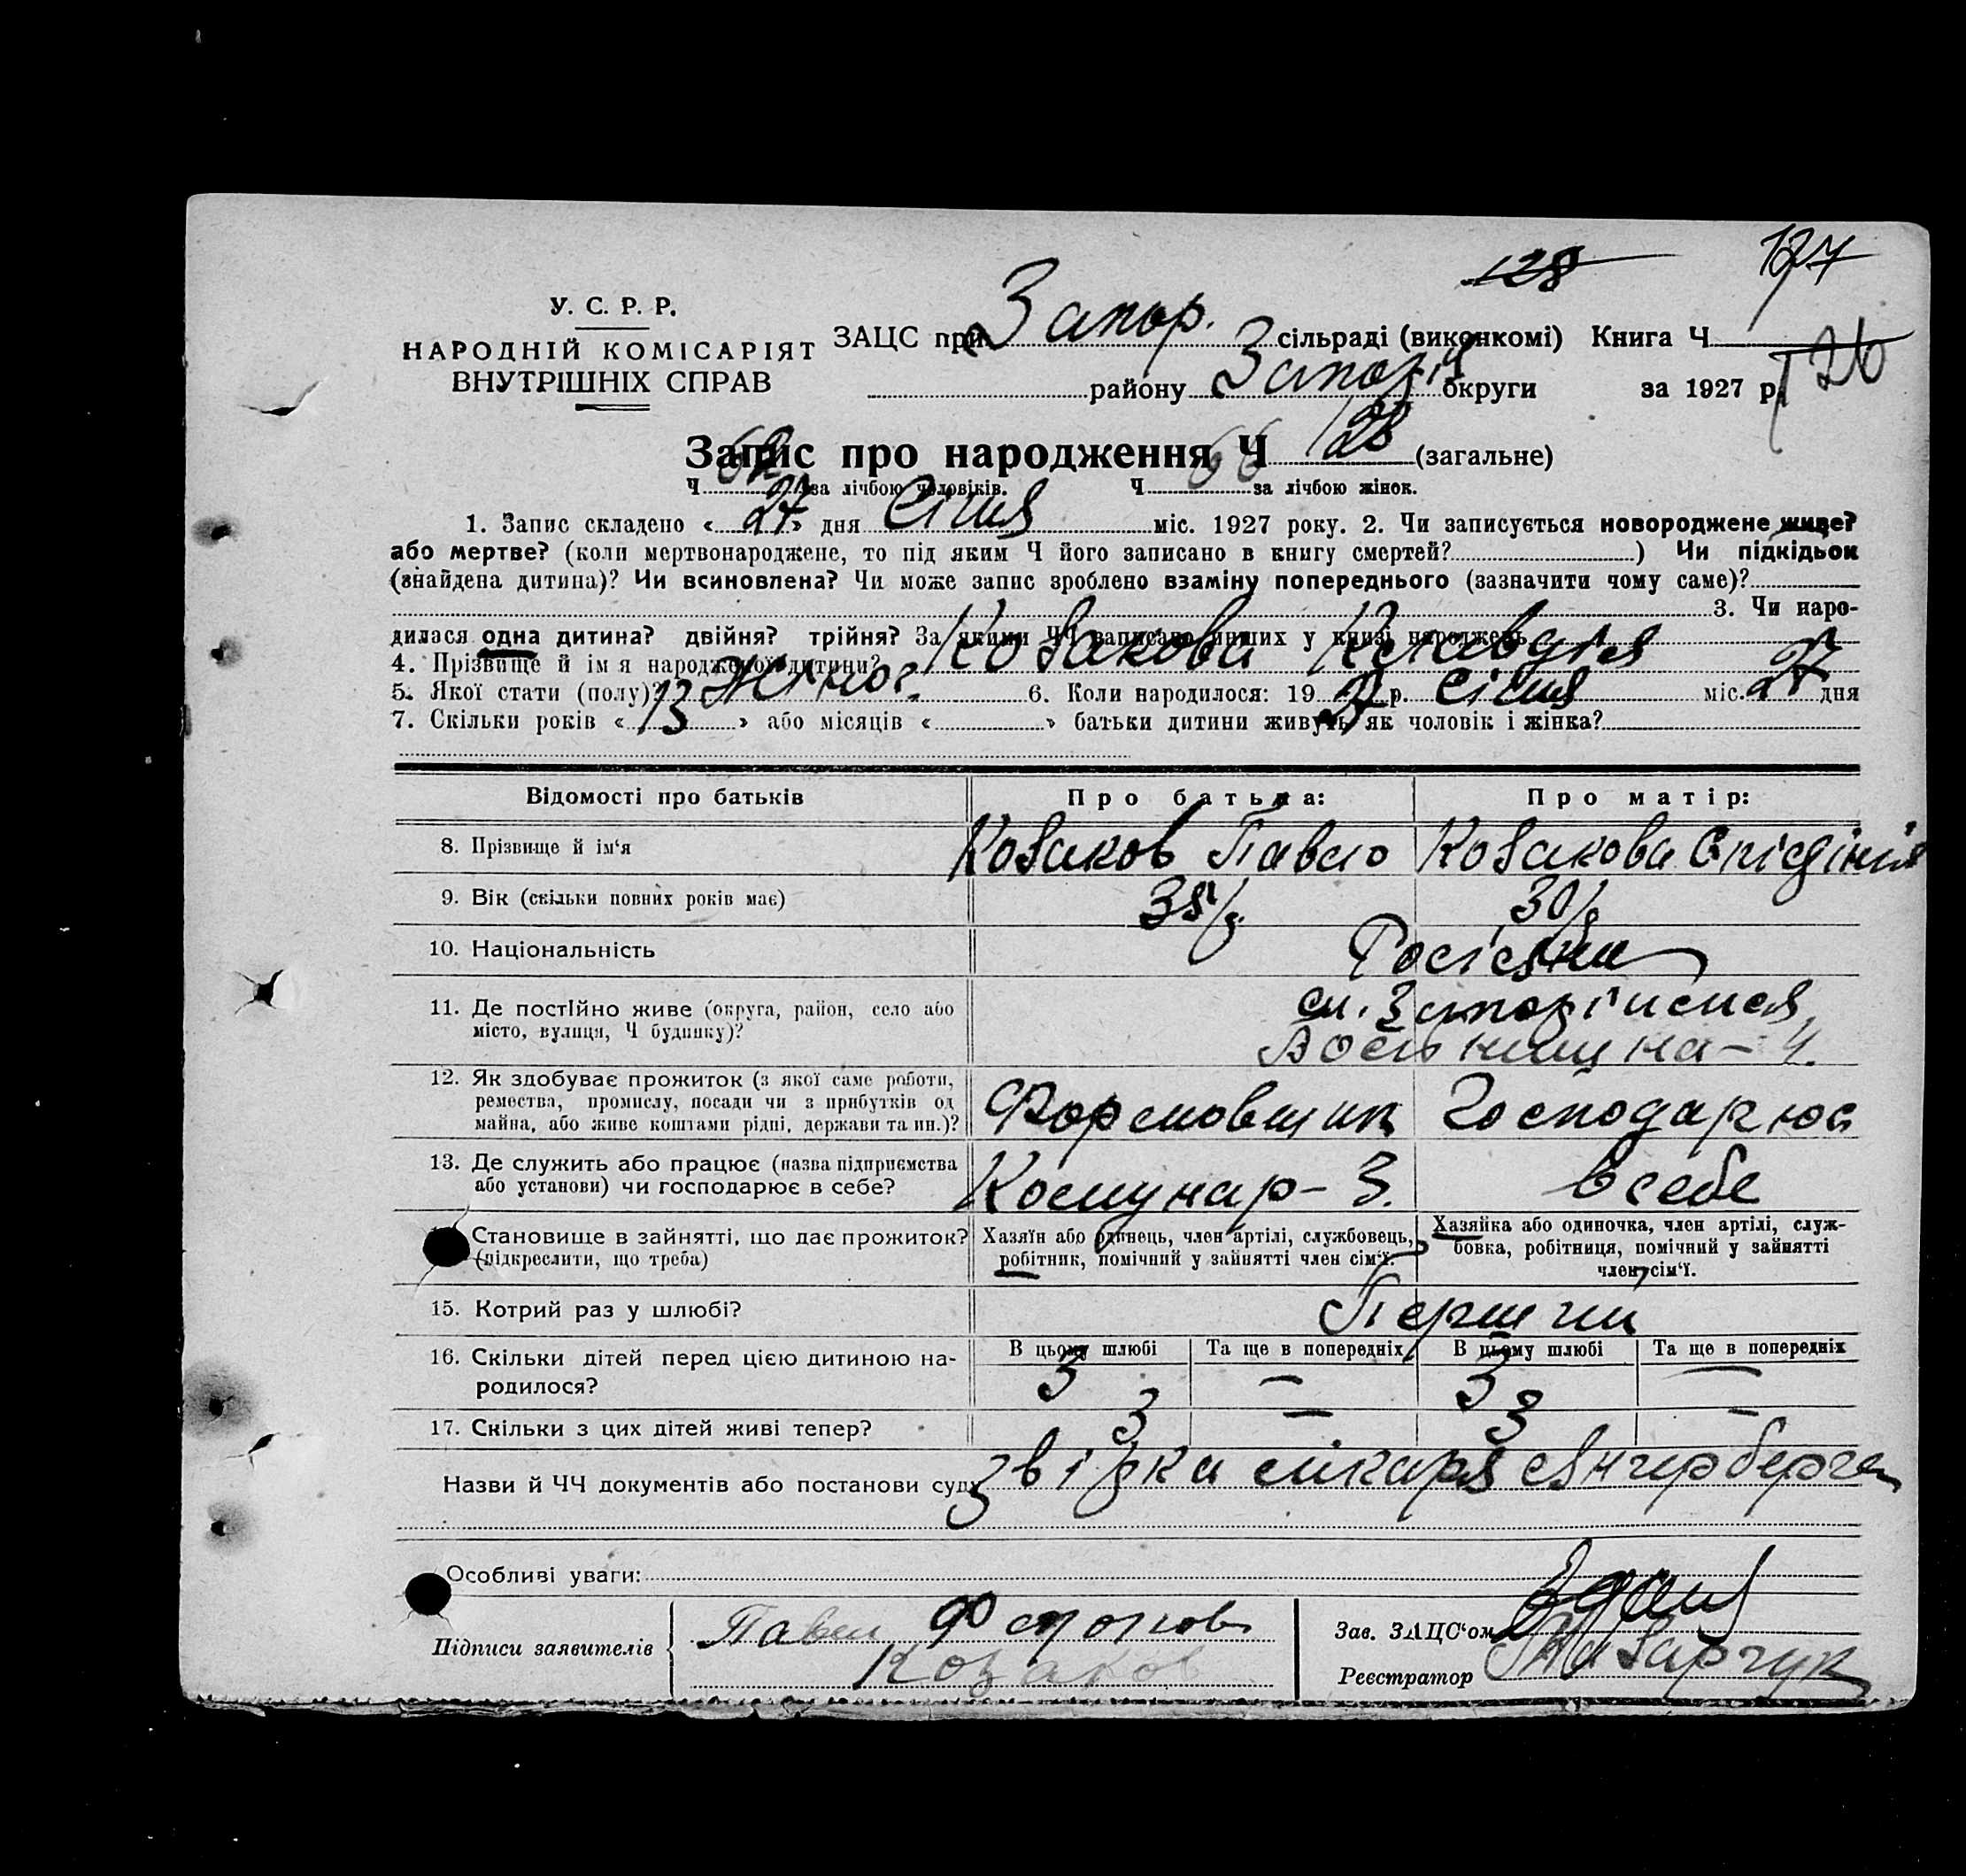 128 127
У. С. Р. Р.
НАРОДНІЙ КОМІСАРІЯТ
ВНУТРІШНІХ СПРАВ
ЗАЦС при Запор. сільраді (виконкомі) Книга Ч 126
району Запоріж округи за 1927 р.
Запис про народження Ч 128 (загальне)
Ч 62 за лічбою чоловіків. Ч 66 за лічбою жінок.
1. Запис складено « 27 » дня Січня міс. 1927 року. 2. Чи записується новороджене живе?
або мертве? (коли мертвонароджене, то під яким Ч його записано в книгу смертей? ) Чи підкідьок
(знайдена дитина)? Чи всиновлена? Чи може запис зроблено взаміну попереднього (зазначити чому саме)?
3. Чи наро-
дилася одна дитина? двійня? трійня? За якими ЧЧ записано инших у книзі народжень
4. Прізвище й ім я народженої дитини? Козакова Клавдія
5. Якої стати (полу)? Жіноч. 6. Коли народилося: 19 27 р. Січня міс. 27 дня
7. Скільки років « 13 » або місяців « » батьки дитини живуть як чоловік і жінка?
Відомості про батьків Про батька: Про матір:
8. Прізвище й ім'я Козаков Павло Козакова
9. Вік (скільки повних років має) 30
10. Національність Росіяни
11. Де постійно живе (округа, район, село або
місто, вулиця, Ч будинку)?
12. Як здобуває прожиток (з якої саме роботи,
ремества, промислу, посади чи з прибутків од
майна, або живе коштами рідні, держави та ин.)? Формовщик Господарює
13. Де служить або працює (назва підприємства
або установи) чи господарює в себе? Комунар - З. в себе
Становище в зайнятті, що дає прожиток?
(підкреслити, що треба)
Хазяїн або одинець, член артілі, службовець,
робітник, помічний у зайнятті член сім'ї.
Хазяйка або одиночка, член артілі, служ-
бовка, робітниця, помічний у зайнятті
член сім'ї.
15. Котрий раз у шлюбі? Перший
16. Скільки дітей перед цією дитиною на-
родилося?
В цьому шлюбі Та ще в попередніх В цьому шлюбі Та ще в попередніх
3 — 3 —
17. Скільки з цих дітей живі тепер? 3 — 3 —
Назви й ЧЧ документів або постанови суду звідка лікаря
Особливі уваги:
Підписи заявителів Павел
Козаков
Зав. ЗАЦС'ом
Реєстратор